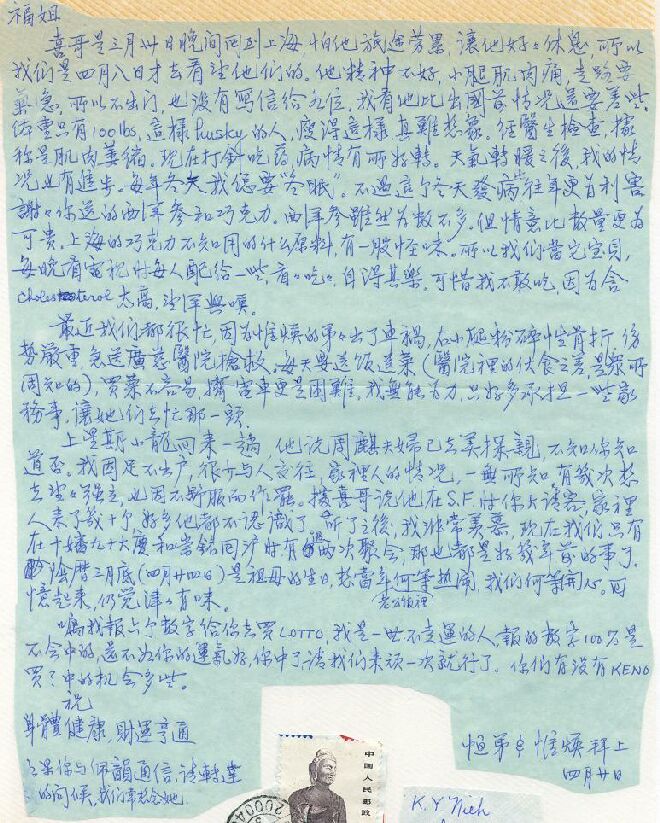 福姐
喜哥是三月廿日晚间回到上海,怕他旅途劳累,讓他好々休息,所以
我們是四月八日才去看望他們的。他精神不好,小腿肌肉痛,走路要
氣急,所以不出门,也没有寫信给各位,我看他比出國前情况還要差些,
体重只有100lbs,這樣husky的人,瘦得這樣真難想象。经醫生檢查,據
称是肌肉萎缩。现在打針吃药,病情有所好轉。天氣轉暖之後,我的情
况也有進步。每年冬天我總要"冬眠"。不過這个冬天發病比往年更为利害
謝々你送的西洋参和巧克力。西洋参雖然为数不多。但情意比数量更为
可贵。上海的巧克力不知用的什么原料,有一股怪味。所以我們當宝貝,
每晚看電视时每人配给一些,看々吃々,自得其樂,可惜我不敢吃,因为含
cholesterol太高,望洋興嘆。
最近我們都很忙,因为惟焕的弟々出了車禍,右小腿粉碎性骨折,傷
势嚴重,急送廣慈醫院搶救,每天要送饭送菜(醫院裡的伙食之差是眾所
周知的),買菜不容易,擠公車更是困難,我無能为力,只好多承担一些家
務事,讓她们去忙那一頭。
上星期小龍回来一趟,他说周麒夫婦已去美探親,不知你知
道否。我因足不出户,很少与人交往,家裡人的情况,一無所知,有幾次想
去望々強兄,也因不舒服而作罷。據喜哥说他在S.F.时你々請客,家裡
人来了幾十个,好多他都不認識了,听了之後,我非常羡慕,现在我們只有
在十嬸九十大慶和
回沪时有过两次聚会,那也都是好幾年前的事了。
陰曆三月底(四月廿四日)是祖母的生日,想當年何等热闹,我們何等開心。回
老公館裡
憶起来,仍覺津々有味。
嘱我報六个数字给你去買LOTTO,我是一世不走運的人,報的数字100%是
不会中的,還不如你的運氣好,你中了請我們来玩一次就行了。你們有没有KENO
買?中的机会多些。
祝
身體健康,財運亨通
恒弟&惟焕拜上
四月廿日
如果你与佩韻通信,請轉達
的问候,我們常想念她
中国人民邮政
K.Y Nieh